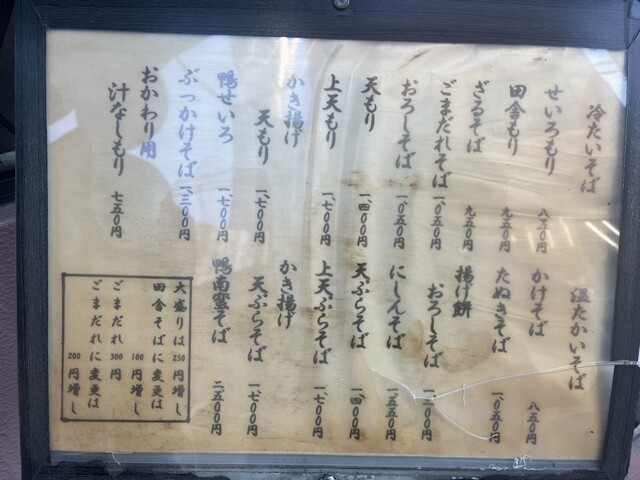 冷たいそば
せいろもり 八五〇円
田舎もり 九五〇円
ざるそば 九五〇円
ごまだれそば 一、〇五〇円
おろしそば 一、〇五〇円
天もり 一、四〇〇円
上天もり 一、七〇〇円
かき揚げ
天もり 一、七〇〇円
鴨せいろ 一、七〇〇円
ぶっかけそば 一、三〇〇円
おかわり用
汁なしもり 七五〇円
温たかいそば
かけそば 八五〇円
たぬきそば 一、〇五〇円
揚げ餅
おろしそば
にしんそば 一、五五〇円
天ぷらそば 一、四〇〇円
上天ぷらそば 一、七〇〇円
かき揚げ
天ぷらそば 一、七〇〇円
鴨南蛮そば 二、五〇〇円
大盛りは250円増し
田舎そばに変更は
100円増し
ごまだれ 300円
ごまだれに変更は
200円増し